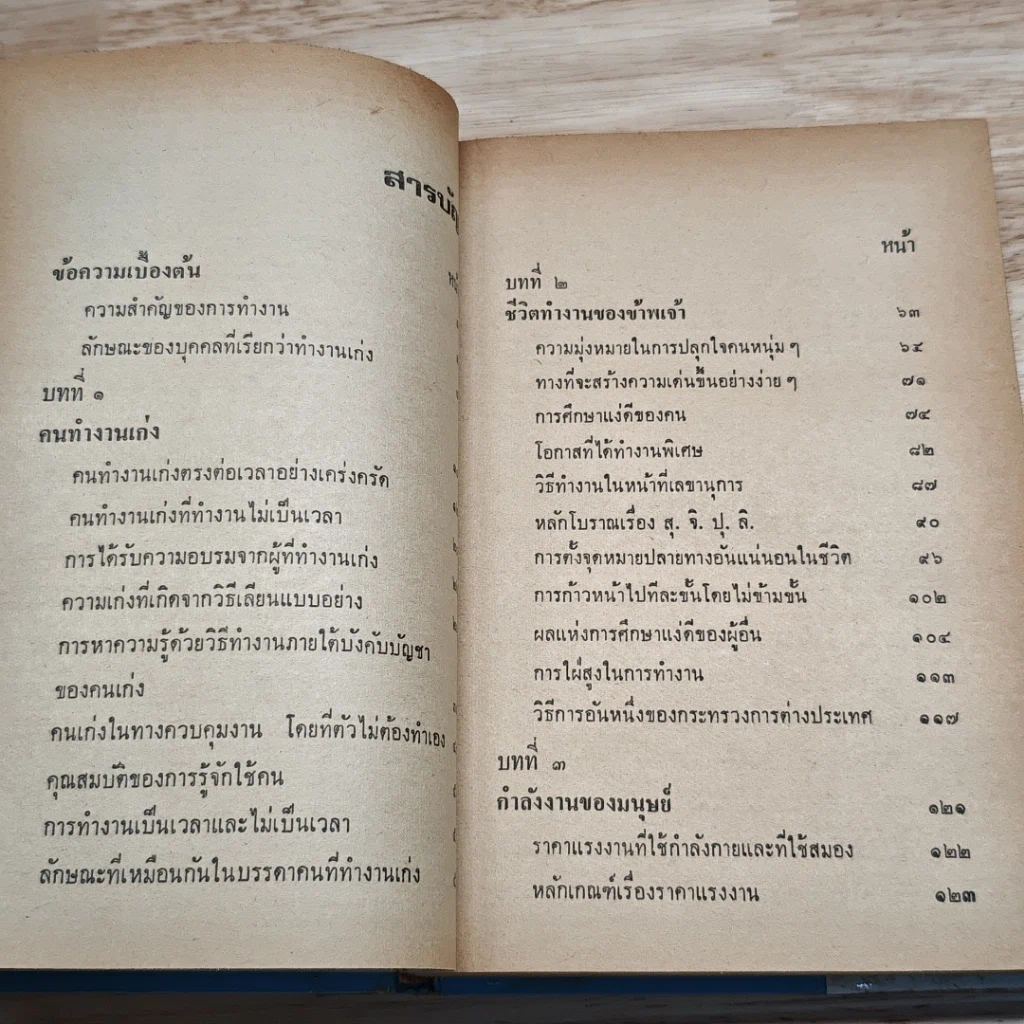 ข้อความเบื้องต้น
ความสำคัญของการทำงาน
ลักษณะของบุคคลที่เรียกว่าทำงานเก่ง
บทที่ ๑
คนทำงานเก่ง
คนทำงานเก่งตรงต่อเวลาอย่างเคร่งครัด
คนทำงานเก่งที่ทำงานไม่เป็นเวลา
การได้รับความอบรมจากผู้ที่ทำงานเก่ง
ความเก่งที่เกิดจากวิธีเลียนแบบอย่าง
การหาความรู้ด้วยวิธีทำงานภายใต้บังคับบัญชา
ของคนเก่ง
คนเก่งในทางควบคุมงาน โดยที่ตัวไม่ต้องทำเอง
คุณสมบัติของการรู้จักใช้คน
การทำงานเป็นเวลาและไม่เป็นเวลา
ลักษณะที่เหมือนกันในบรรดาคนที่ทำงานเก่ง
หน้า
บทที่ ๒
ชีวิตทำงานของข้าพเจ้า ๖๓
ความมุ่งหมายในการปลุกใจคนหนุ่ม ๆ ๖๔
ทางที่จะสร้างความเด่นขึ้นอย่างง่าย ๆ ๗๑
การศึกษาแง่ดีของคน ๗๔
โอกาสที่ได้ทำงานพิเศษ ๘๒
วิธีทำงานในหน้าที่เลขานุการ ๘๗
หลักโบราณเรื่อง สุ. จิ. ปุ. ลิ. ๙๐
การตั้งจุดหมายปลายทางอันแน่นอนในชีวิต ๙๖
การก้าวหน้าไปทีละขั้นโดยไม่ข้ามขั้น ๑๐๒
ผลแห่งการศึกษาแง่ดีของผู้อื่น ๑๐๔
การใฝ่สูงในการทำงาน ๑๑๓
วิธีการอันหนึ่งของกระทรวงการต่างประเทศ ๑๑๗
บทที่ ๓
กำลังงานของมนุษย์ ๑๒๑
ราคาแรงงานที่ใช้กำลังกายและที่ใช้สมอง ๑๒๒
หลักเกณฑ์เรื่องราคาแรงงาน ๑๒๓